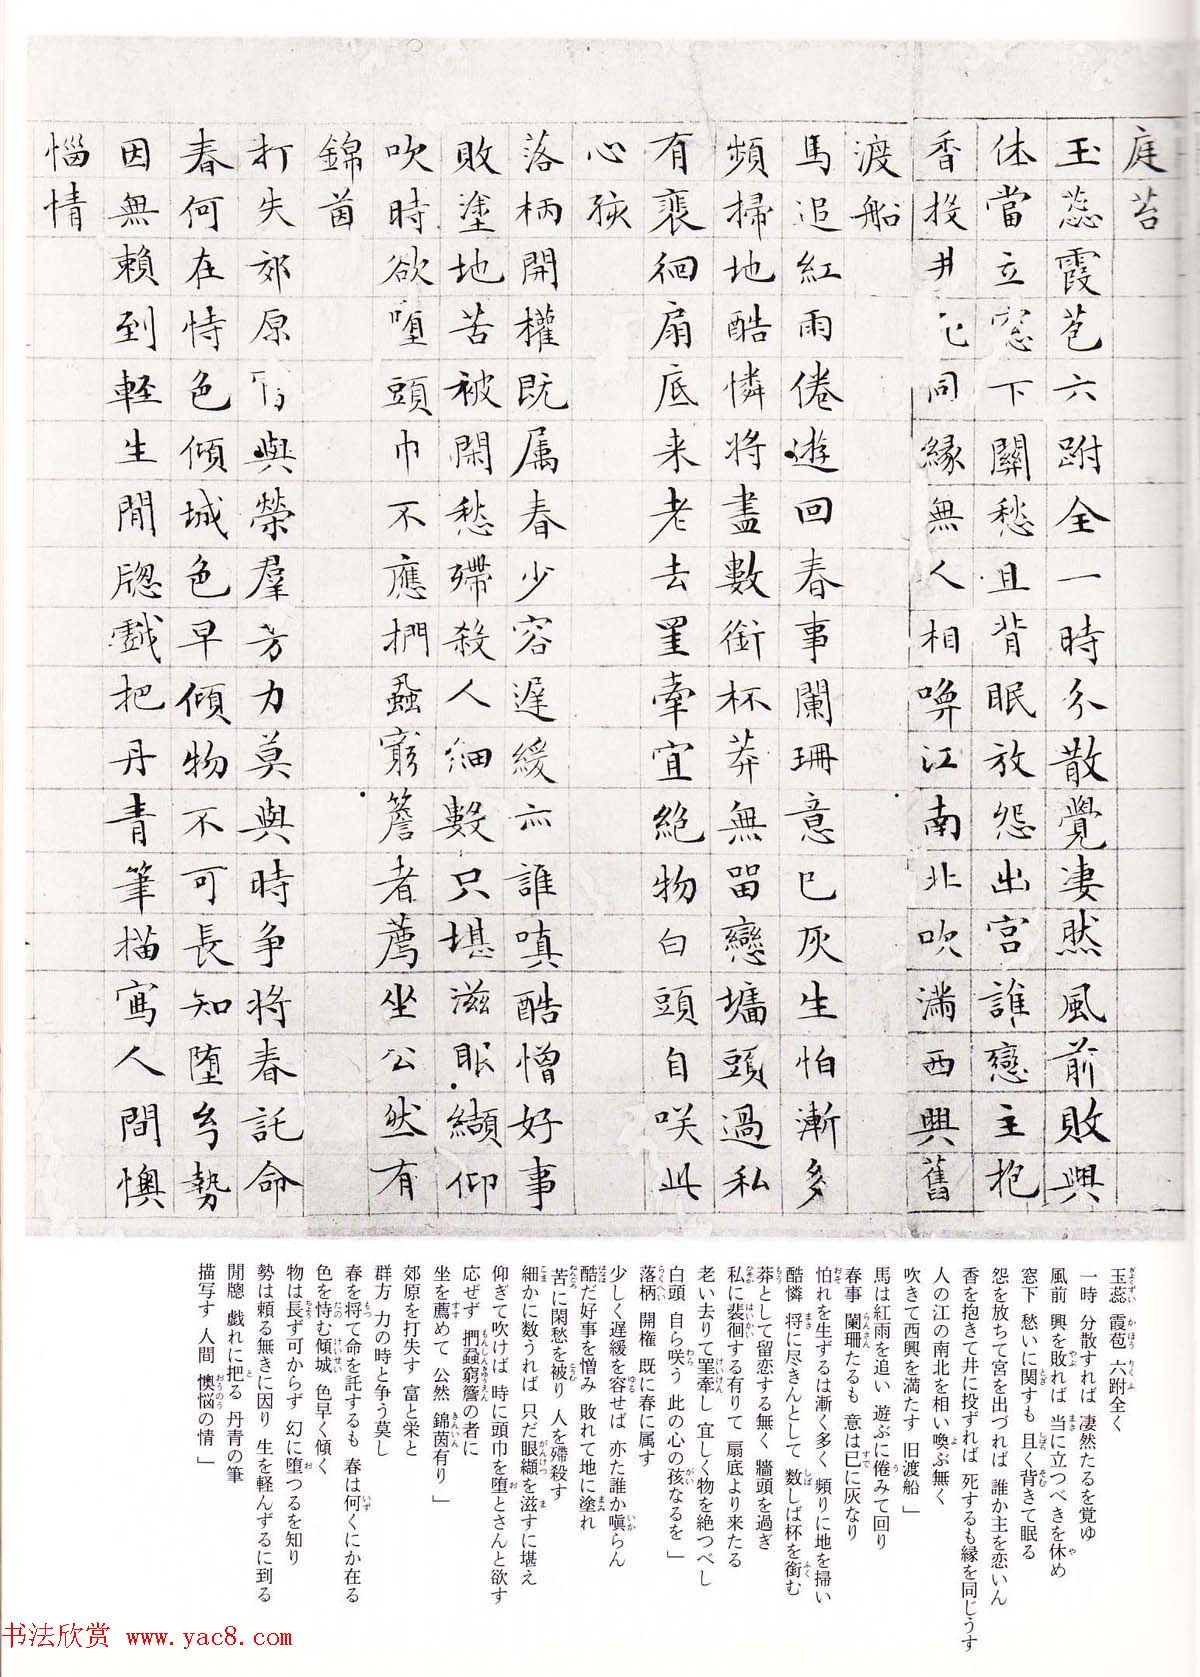 庭苔
玉蕊霞苞六跗全一時分散覺凄然風前敗興
休當立窓下關愁且背眠放怨出宮誰戀主抱
香投井死同縁無人相喚江南北吹滿西興舊
渡船
馬追紅雨倦遊回春事闌珊意已灰生怕漸多
頻掃地酷憐將盡數銜杯莽無留戀墻頭過私
有裵徊扇底来老去罣牽宜絶物白頭自咲此
心孩
落柄開權既属春少容遅緩亦誰嗔酷憎好事
敗塗地苦被閑愁殢殺人細數只堪滋眼纈仰
吹時欲堕頭巾不應捫蝨窮簷者薦坐公然有
錦茵
打失郊原富與榮羣芳力莫與時争将春託命
春何在恃色傾城色早傾物不可長知堕幻勢
因無賴到輕生閒牕戲把丹青筆描寫人間懊
惱情
玉蕊 霞苞 六跗全く
ぎょくずい かほう りくふ
一時 分散すれば 凄然たるを覚ゆ
風前 興を敗れば 当に立つべきを休め
窓下 愁いに関すも 且く背きて眠る
怨を放ちて宮を出づれば 誰か主を恋いん
香を抱きて井に投ずれば 死するも縁を同じうす
人の江の南北を相い喚ぶ無く
吹きて西興を満たす 旧渡船」
馬は紅雨を追い 遊ぶに倦みて回り
春事 闌珊たるも 意は已に灰なり
怕れを生ずるは漸く多く 頻りに地を掃い
酷憐 将に尽きんとして 数しば杯を銜む
莽として留恋する無く 牆頭を過ぎ
私に裴徊する有りて 扇底より来たる
老い去りて罣牽し 宜しく物を絶つべし
白頭 自ら咲う 此の心の孩なるを」
落柄 開権 既に春に属す
少しく遅緩を容せば 亦た誰か嗔らん
酷だ好事を憎み 敗れて地に塗れ
苦に閑愁を被り 人を殢殺す
細かに数うれば 只だ眼纈を滋すに堪え
仰ぎて吹けば 時に頭巾を堕とさんと欲す
応ぜず 捫蝨窮簷の者に
坐を薦めて 公然 錦茵有り」
郊原を打失す 富と栄と
群方 力の時と争う莫し
春を将て命を託するも 春は何くにか在る
色を恃む傾城 色早く傾く
物は長ず可からず 幻に堕つるを知り
勢は頼る無きに因り 生を軽んずるに到る
閒牕 戯れに把る 丹青の筆
描写す 人間 懊悩の情」
书法欣赏 www.yac8.com